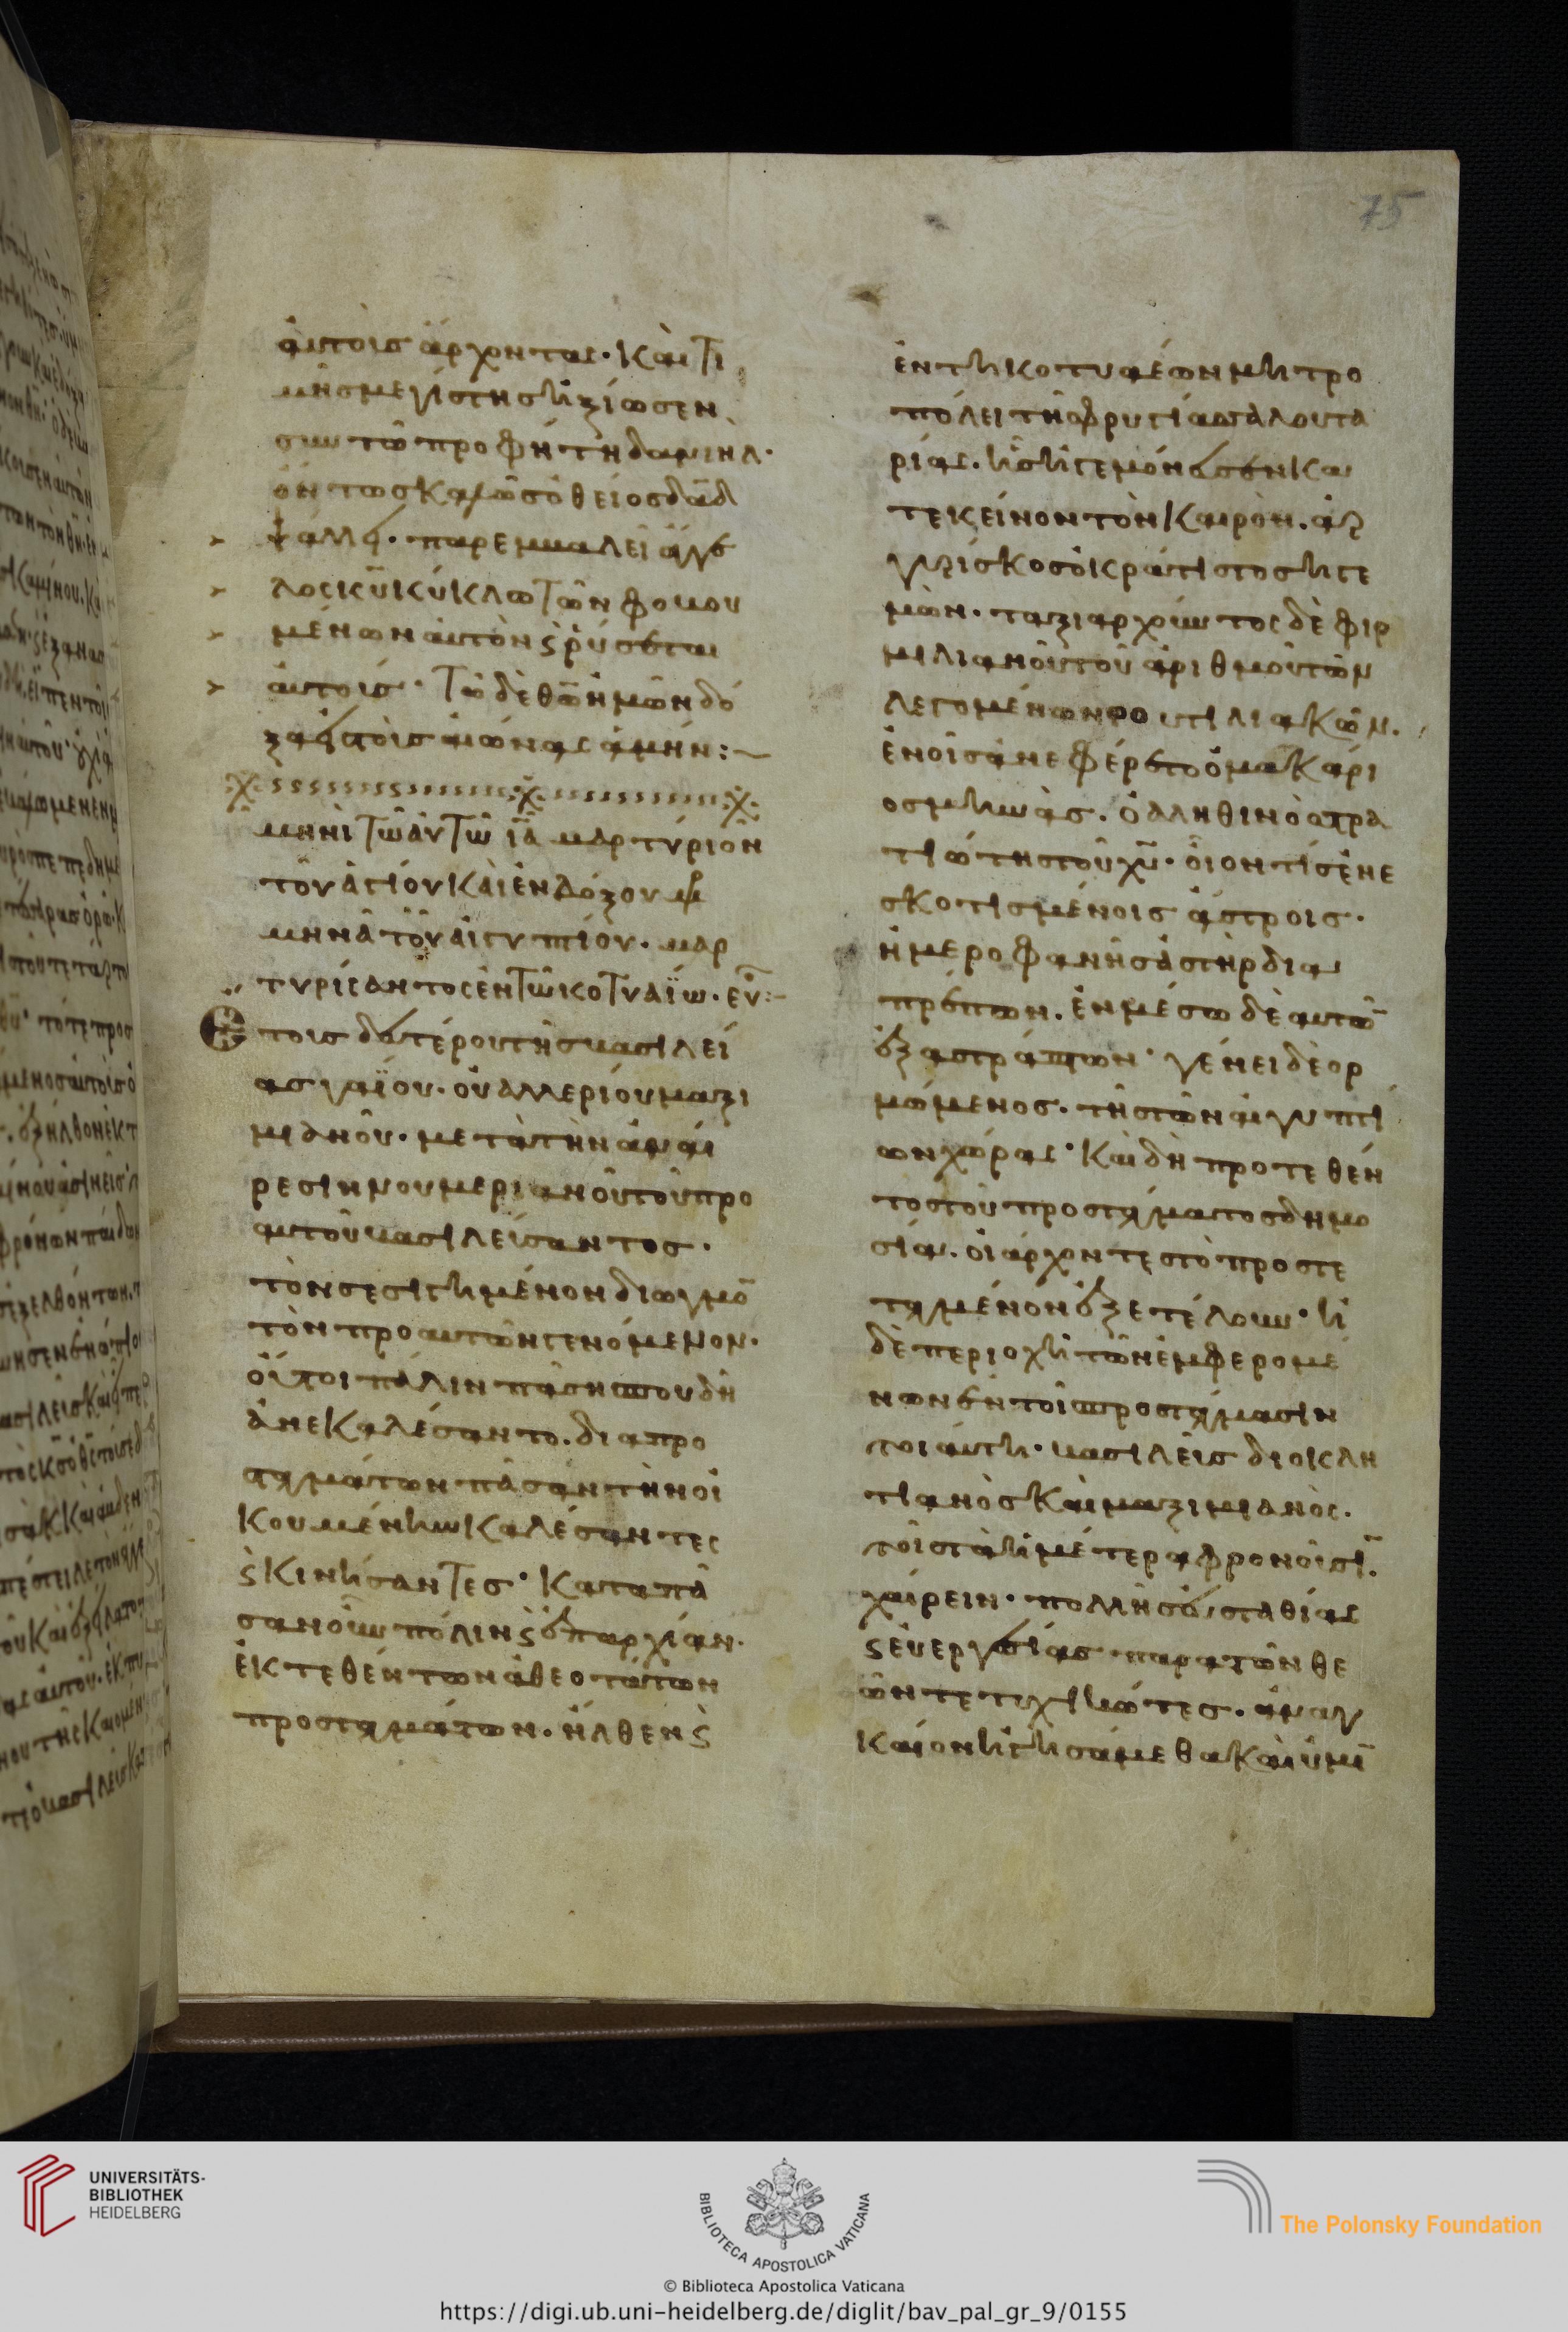 75
αὐτοῖς ἄρχοντας· καὶ τι
μῆς μεγίστης ἠξίωσεν
σὺν τῶ προφήτη δανιὴλ·
ὄντως καλῶς ὁ θεῖος δᾱδ
ψάλλει· παρεμβαλεῖ ἄγγε
λος κῡ κύκλω τῶν φοβου
μένων αὐτὸν ϛ ῥύσεται
αὐτούς· Τῶ δὲ θῶ ἡμῶν δό
ξα εἰς τοὺς αἰῶνας ἀμήν:~
μηνὶ τῶ αὐτῶ ῑᾱ μαρτύριον
τοῦ ἁγίου καὶ ἐνδόξου μρ
μηνᾶ τοῦ αἰγυπτίου· μαρ
τυρίσαντος ἐν τῶ κοτυαΐω· εὐ:-
Ετους δευτέρου τῆς βασιλεί
ας γαΐου· οὐαλλερίου μαξι
μιανοῦ· μετὰ τὴν ἀναί
ρεσιν νουμεριανοῦ τοῦ προ
αυτοῦ βασιλεύσαντος·
τὸν σεσιγημένον διωγμὸ̄
τὸν προ αυτῶν γενόμενον·
οὗτοι πάλιν πάση σπουδῆ
ἀνεκαλέσαντο· δια προ
σταγμάτων πᾶσαν τὴν οἰ
κουμένην καλέσαντες
ϛ κινήσαντες· Κατα πᾶ
σαν οὖν πόλιν ϛ ἐπαρχίαν·
ἐκτεθέντων ἀθεοτάτων
προσταγμάτων· ἦλθεν ϛ
ἐν τῆ κοτυαέων μητρο
πόλει τῆς φρυγίας τὰ λουτα
ρίας· ἧς ἡγεμόνευσεν κα
τ εκεῖνον τὸν καιρὸν· ἀρ
γυρίσκος ὁ κράτιστος ἡγε
μὼν· ταξιαρχοῦντος δὲ φιρ
μιλιανοῦ τοῦ ἀριθμοῦ τῶν
λεγομένων ρουτιλιακῶν·
ἐν οἷς ἀνεφέρετο ὁ μακάρι
ος μηνᾶς· ὁ αληθινὸς στρα
τιώτης τοῦ χῡ· οἷον τίς ἐν ἐ
σκοτισμένοις ἄστροις·
ἡμεροφανὴς ἀστὴρ δια
πρέπων· ἐν μέσω δὲ αυτῶ̄
ἐξαστράπτων· γένει δὲ ὁρ
μώμενος· τῆς τῶν αἰγυπτί
ων χώρας· Καὶ δὴ προτεθέν
τος τοῦ προστάγματος δημο
σία· οἱ ἄρχοντες τὸ προστε
ταγμένον ἐξετέλουν· ἡ
δὲ περιοχὴ τῶν ἐμφερομέ
νων ἐν τοῖς προστάγμασιν
τοιαύτη· βασιλεῖς διοκλη
τιανὸς καὶ μαξιμιανὸς·
τοῖς τὰ ἡμέτερα φρονοῦσῑ·
χαίρειν· πολλῆς εὐσταθίας
ϛ εὐεργεσίας παρα τῶν θε
ῶν τετυχηκότες· ἀναγ
καῖον ἡγησάμεθα καὶ ὑμῖ̄
UNIVERSITÄTS-
BIBLIOTHEK
HEIDELBERG
BIBLIOTECA APOSTOLICA VATICANA
The Polonsky Foundation
© Biblioteca Apostolica Vaticana
https://digi.ub.uni-heidelberg.de/diglit/bav_pal_gr_9/0155